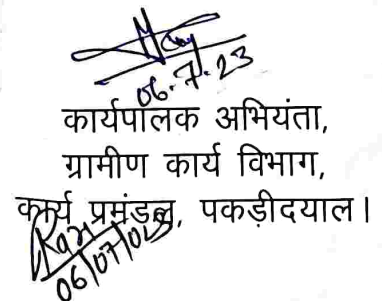 06.7.23
कार्यपालक अभियंता,
ग्रामीण कार्य विभाग,
कार्य प्रमंडल, पकड़ीदयाल।
06/07/023